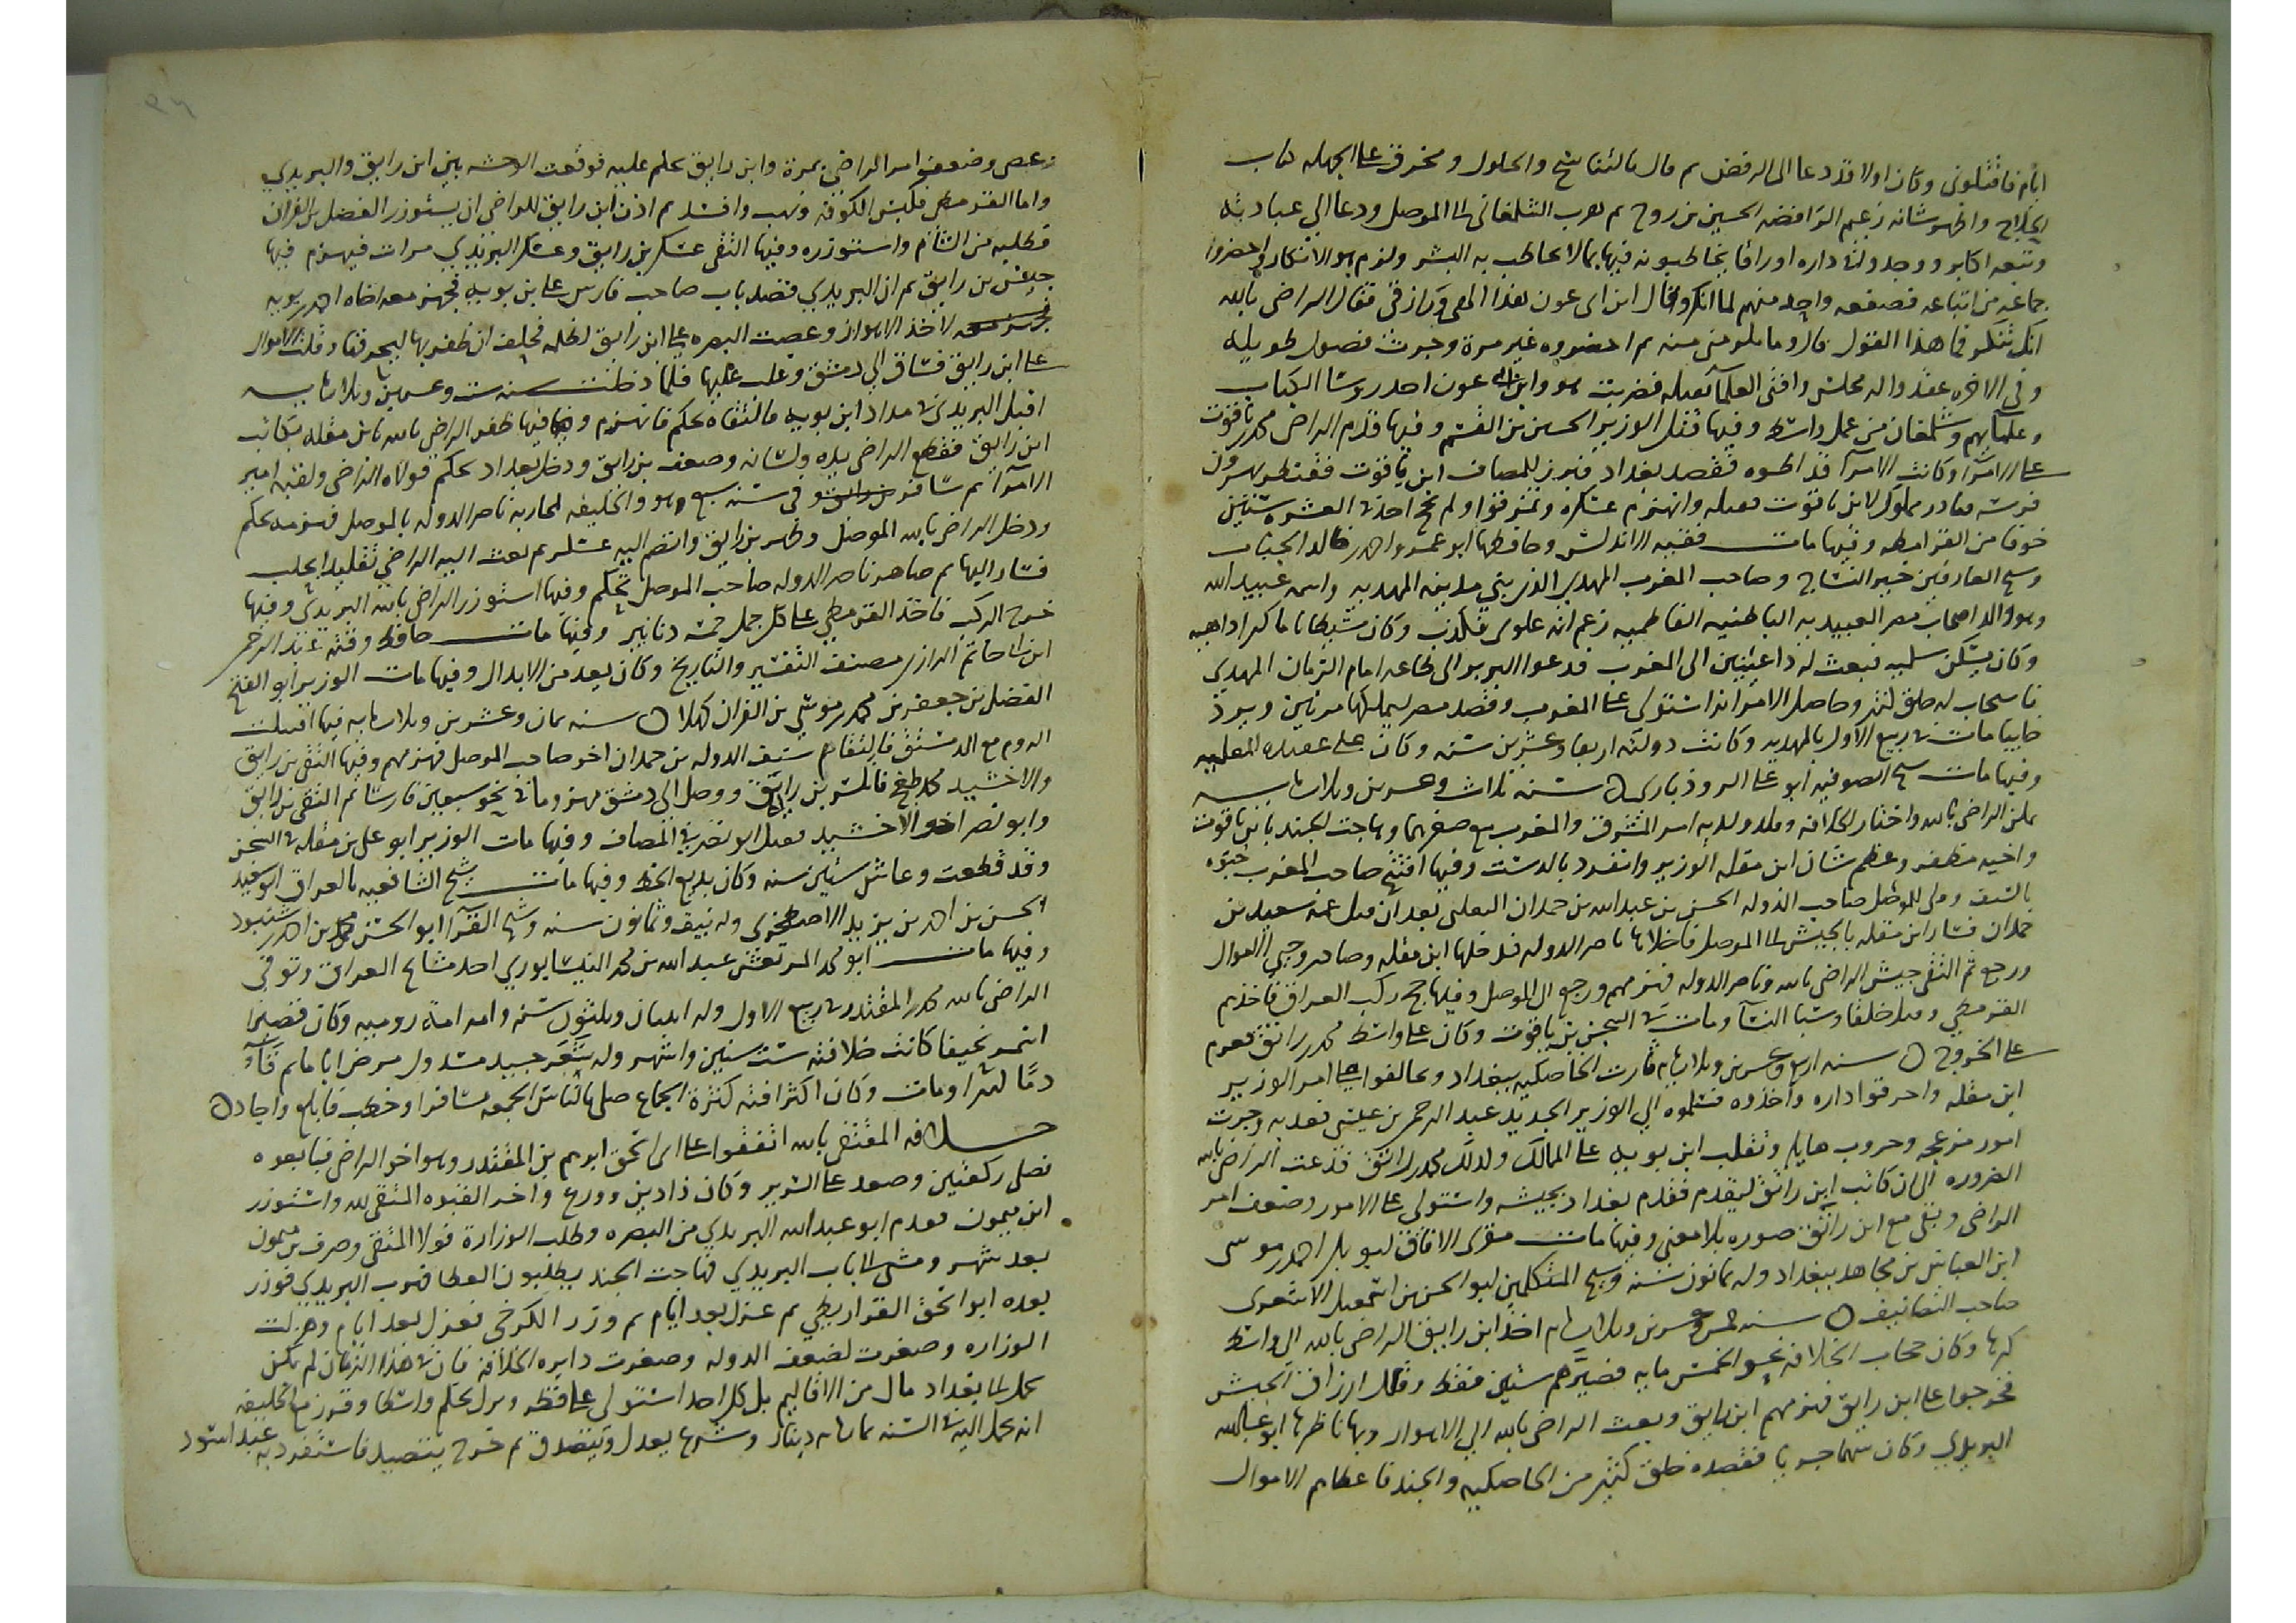 ايام فاقتلونى وكان اولا قد دعا الى الرفض ثم قال بالتناسخ والحلول ومخرق على الجهله كما
الحلاج واظهر شانه زعيم الرافضه الحسين بن روح ثم هرب الشلغانى الى الموصل ودعا الى عبادته
وتبعه اكابر ووجدوا في داره اوراقا يخاطبونه فيها بما لا يخاطب به البشر ولزم هو الانكار واحضروا
جماعه من اتباعه فصفعه واحد منهم لما انكر وقال ابن ابى عون هذا الهي ورازقى فقال الراضى بالله
انك تنكر فما هذا القول قال وما يلزمنى منه ثم احضروه غير مرة وجرت فصول طويله
وفى الاخره عقدوا له مجلس وافتى العلما بقتله فضربت هو وابن ابى عون احد روسا الكتاب
وعلمايهم وشلمغان من عمل واسط وفيها قتل الوزير الحسين بن القسم وفيها قدم الراضى محمد بن ياقوت
على الامرا وكانت الامرا قد فقصد بغداد فبرز للمصاف ابن ياقوت فتقنطر بهرون
فرسه فبادر مملوك لابن ياقوت فقتله وانهزم عسكره وتمزقوا ولم يحج احد في العشره سنين
خوفا من القرامطه وفيها مات فقيه الاندلس وحافظها ابو عمرو احمد بن خالد الجباب
وشيخ العارفين خير النساج وصاحب المغرب المهدي الذي بنى مدينه المهديه واسمه عبيد الله
وهو والد اصحاب مصر العبيديه الباطنيه الفاطميه زعم انه علوى فكذب وكان شيطانا ماكرا داهيه
وكان يسكن سلميه فبعث له داعيين الى المغرب فدعوا البربر الى طاعه امام الزمان المهدي
فاستجاب له خلق كثير وحاصل الامر انه استولى على المغرب وقصد مصر ليملكها مرتين ويرد
خايبا مات في ربيع الاول بالمهديه وكانت دولته اربعا وعشرين سنه وكان على عقيده
وفيها مات شيخ الصوفيه ابو على الروذبارى سنه ثلاث وعشرين وثلاث مايه
تمكن الراضى بالله واختار الخلافه وقلد ولديه امر المشرق والمغرب مع صغرهما وهاجت الجند بابن ياقوت
واخيه مظفر وعظم شان ابن مقله الوزير وانفرد بالدست وفيها افتتح صاحب المغرب جنوه
بالسيف وولى الموصل صاحب الدوله الحسن بن عبد الله بن حمدان التغلبى بعد ان قتل عمه سعيد بن
حمدان فسار ابن مقله بالجيش الى الموصل فاخلاها ناصر الدوله فدخلها ابن مقله وصادر وجبى الاموال
ورجع ثم التقى جيش الراضى بالله وناصر الدوله فهزمهم ورجع الى الموصل وفيها حج ركب العراق فاخذهم
القرمطي وقتل خلقا وسبا النسا ومات في السجن ابن ياقوت وكان على واسط محمد بن رائق فعزم
على الخروج سنه اربع وعشرين وثلاث مايه ثارت الخاصكيه ببغداد وتحالفوا على امر الوزير
ابن مقله واحرقوا داره واخذوه فسلموه الى الوزير الجديد عبد الرحمن بن عيسى فعذبه وجرت
امور مزعجه وحروب هايله وتغلب ابن بويه على الممالك وكذلك محمد بن رائق فدعت الراضى بالله
الضروره الى ان كاتب ابن رائق ليقدم فقدم بغداد بجيشه واستولى على الامور وضعف امر
الراضى وبقى مع ابن رائق صوره بلا معنى وفيها مات مقرى الافاق ابو بكر احمد بن موسى
ابن العباس بن مجاهد ببغداد وله ثمانون سنه وشيخ المتكلمين ابو الحسن بن اسمعيل الاشعرى
صاحب التصانيف سنه خمس وعشرين وثلاث مايه اخذ ابن رايق الراضى بالله الى واسط
كرها وكان حجاب الخلافه نحوا الخمس مايه فصيرهم ستين فقط وقلل ارزاق الجيش
فخرجوا على ابن رايق فهزمهم ابن رايق وبعث الراضى بالله الى الاهواز وبها ناظرها ابو عبدالله
البريدي وكان شهما جريا فقصده خلق كثير من الخاصكيه والجند فاعطاهم الاموال
وعصى وضعف امر الراضى بمرة وابن رايق يحكم عليه فوقعت الوحشه بين ابن رايق والبريدي
واما القرمطى فكبس الكوفه ونهب وافسد ثم اذن ابن رايق للراضى ان يستوزر الفضل بن الفرات
فطلبه من الشام واستوزره وفيها التقى عسكر بن رايق وعسكر البريدي مرات فيهزم فيها
جيش بن رايق ثم ان البريدي قصد باب صاحب فارس على بن بويه فجهز معه اخاه احمد بن بويه
لاخذ الاهواز وعصيت البصره على ابن رايق لظلمه فحلف ان ظفر بها وقلت الاموال
على ابن رايق فساق الى دمشق وغلب عليها فلما دخلت سنه ست وعشرين وثلاث مايه
اقبل البريدى في مدد ابن بويه فالتقاه بحكم فانهزم وفيها ظفر الراضى بالله بابن مقله يكاتب
ابن رايق فقطع الراضى يده ولسانه وضعف بن رايق ودخل بغداد بحكم فولاه الراضى ولقبه امير
الامرا ثم سافر وفى سنه سبع هو والخليفه لمحاربه ناصر الدوله بالموصل فهزمه بحكم
ودخل الراضى بالله الموصل وظهر بن رايق وانضم اليه عسكر ثم بعث اليه الراضى تقليدا بحلب
فسار اليها ثم صاهر ناصر الدوله صاحب الموصل بحكم وفيها استوزر الراضى بالله البريدى وفيها
خرج الركب فاخذ القرمطي على كل جمل خمسه دنانير وفيها مات حافظ وقته عبد الرحمن
ابن ابى حاتم الرازى مصنف التفسير والتاريخ وكان يعد من الابدال وفيها مات الوزير ابو الفتح
الفضل بن جعفر بن محمد بن موسى بن الفرات كهلا سنه ثمان وعشرين وثلاث مايه فيها اقبلت
الروم مع الدمستق فالتقاهم سيف الدوله بن حمدان اخو صاحب الموصل فهزمهم وفيها التقى بن رايق
والاخشيد محمد بن طغج فانكسر بن رايق ووصل الى دمشق مهزوما في نحو سبعين فارسا ثم التقى بن رايق
وابو نصر اخو الاخشيد فقتل ابو نصر فى المصاف وفيها مات الوزير ابو على بن مقله في السجن
وقد قطعت وعاش ستين سنه وكان بديع الخط وفيها مات شيخ الشافعيه بالعراق ابو سعيد
الحسن بن احمد بن يزيد الاصطخرى وله نيف وثمانون سنه وشيخ القرا ابو الحسن محمد بن احمد بن شنبود
وفيها مات ابو محمد المرتعش عبد الله بن محمد النيسابوري احد مشايخ العراق وتوفى
الراضى بالله محمد بن المقتدر في ربيع الاول وله احدى وثلثون سنه وامه امة روميه وكان قصيرا
اسمر نحيفا كانت خلافته ست سنين واشهر وله شعر جيد مدون مرض اياما ثم قاء
دما كثيرا ومات وكان اكثر افته كثرة الجماع صلى بالناس الجمعه مسافرا وخطب فابلغ واجاد
خلافه المتقى بالله اتفقوا على ابى اسحق ابراهيم بن المقتدر وهو اخو الراضى فبايعوه
فصلى ركعتين وصعد على السرير وكان ذا دين وورع واخر القبوه المتقى لله واستوزر
ابن ميمون فقدم ابو عبد الله البريدي من البصره وطلب الوزارة فولاه المتقى وصرف بن ميمون
بعد شهر ومشى الى باب البريدي فهاجت الجند يطلبون العطا فهرب البريدي فوزر
بعده ابو اسحق القراريطي ثم عزل بعد ايام ثم وزر الكرخى فعزل بعد ايام وهزلت
الوزاره وصغرت لضعف الدوله وصغرت دايره الخلافه فان في هذا الزمان لم يكن
يحمل الى بغداد مال من الاقاليم بل كل احد استولى على قطر ونزل بحكم واسطا وقرر مع الخليفه
انه يحمل اليه في السنه ثمان مايه دينار وشرع يعدل ويتصدق ثم خرج يتصيد فاستفرد به عبد اسود